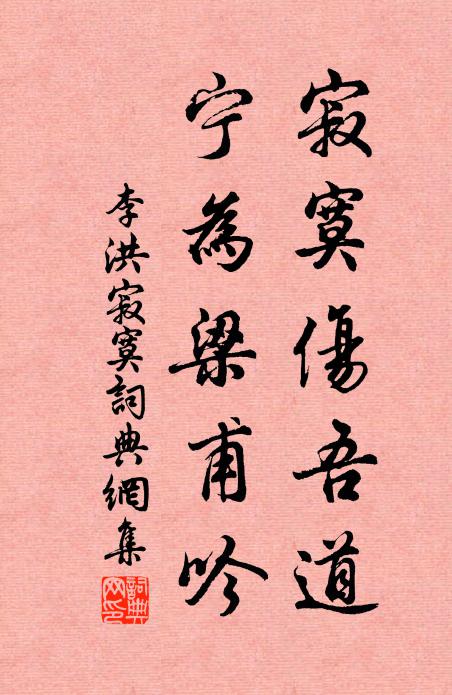 寂寞傷吾道
宁為梁甫吟
李洪寂寞詞典網集
詞典网印